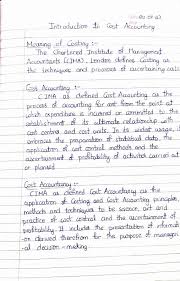 Introduction to Cost Accounting
Meaning of Costing :-
The Chartered Institute of Management
Accountants (CIMA), London defines Costing as
the techniques and processes of ascertaining costs
Cost Accounting :-
CIMA as defined Cost Accounting as the
process of accounting for cost from the point at
which expenditure is incurred or committed to the
establishment of its ultimate relationship with
cost control and cost units. In its widest usage, it
embraces the preparation of statistical data, the
application of cost control methods and the
ascertainment of profitability of activities carried out
or planned
Cost Accountancy :-
CIMA as defined Cost Accountancy as the
application of Costing and Cost Accounting principles,
methods and techniques to be science, art and
practice of cost control and the ascertainment of
profitability. It include the presentation of informati
on derived therefrom for the purpose of manageri
al decision-making.